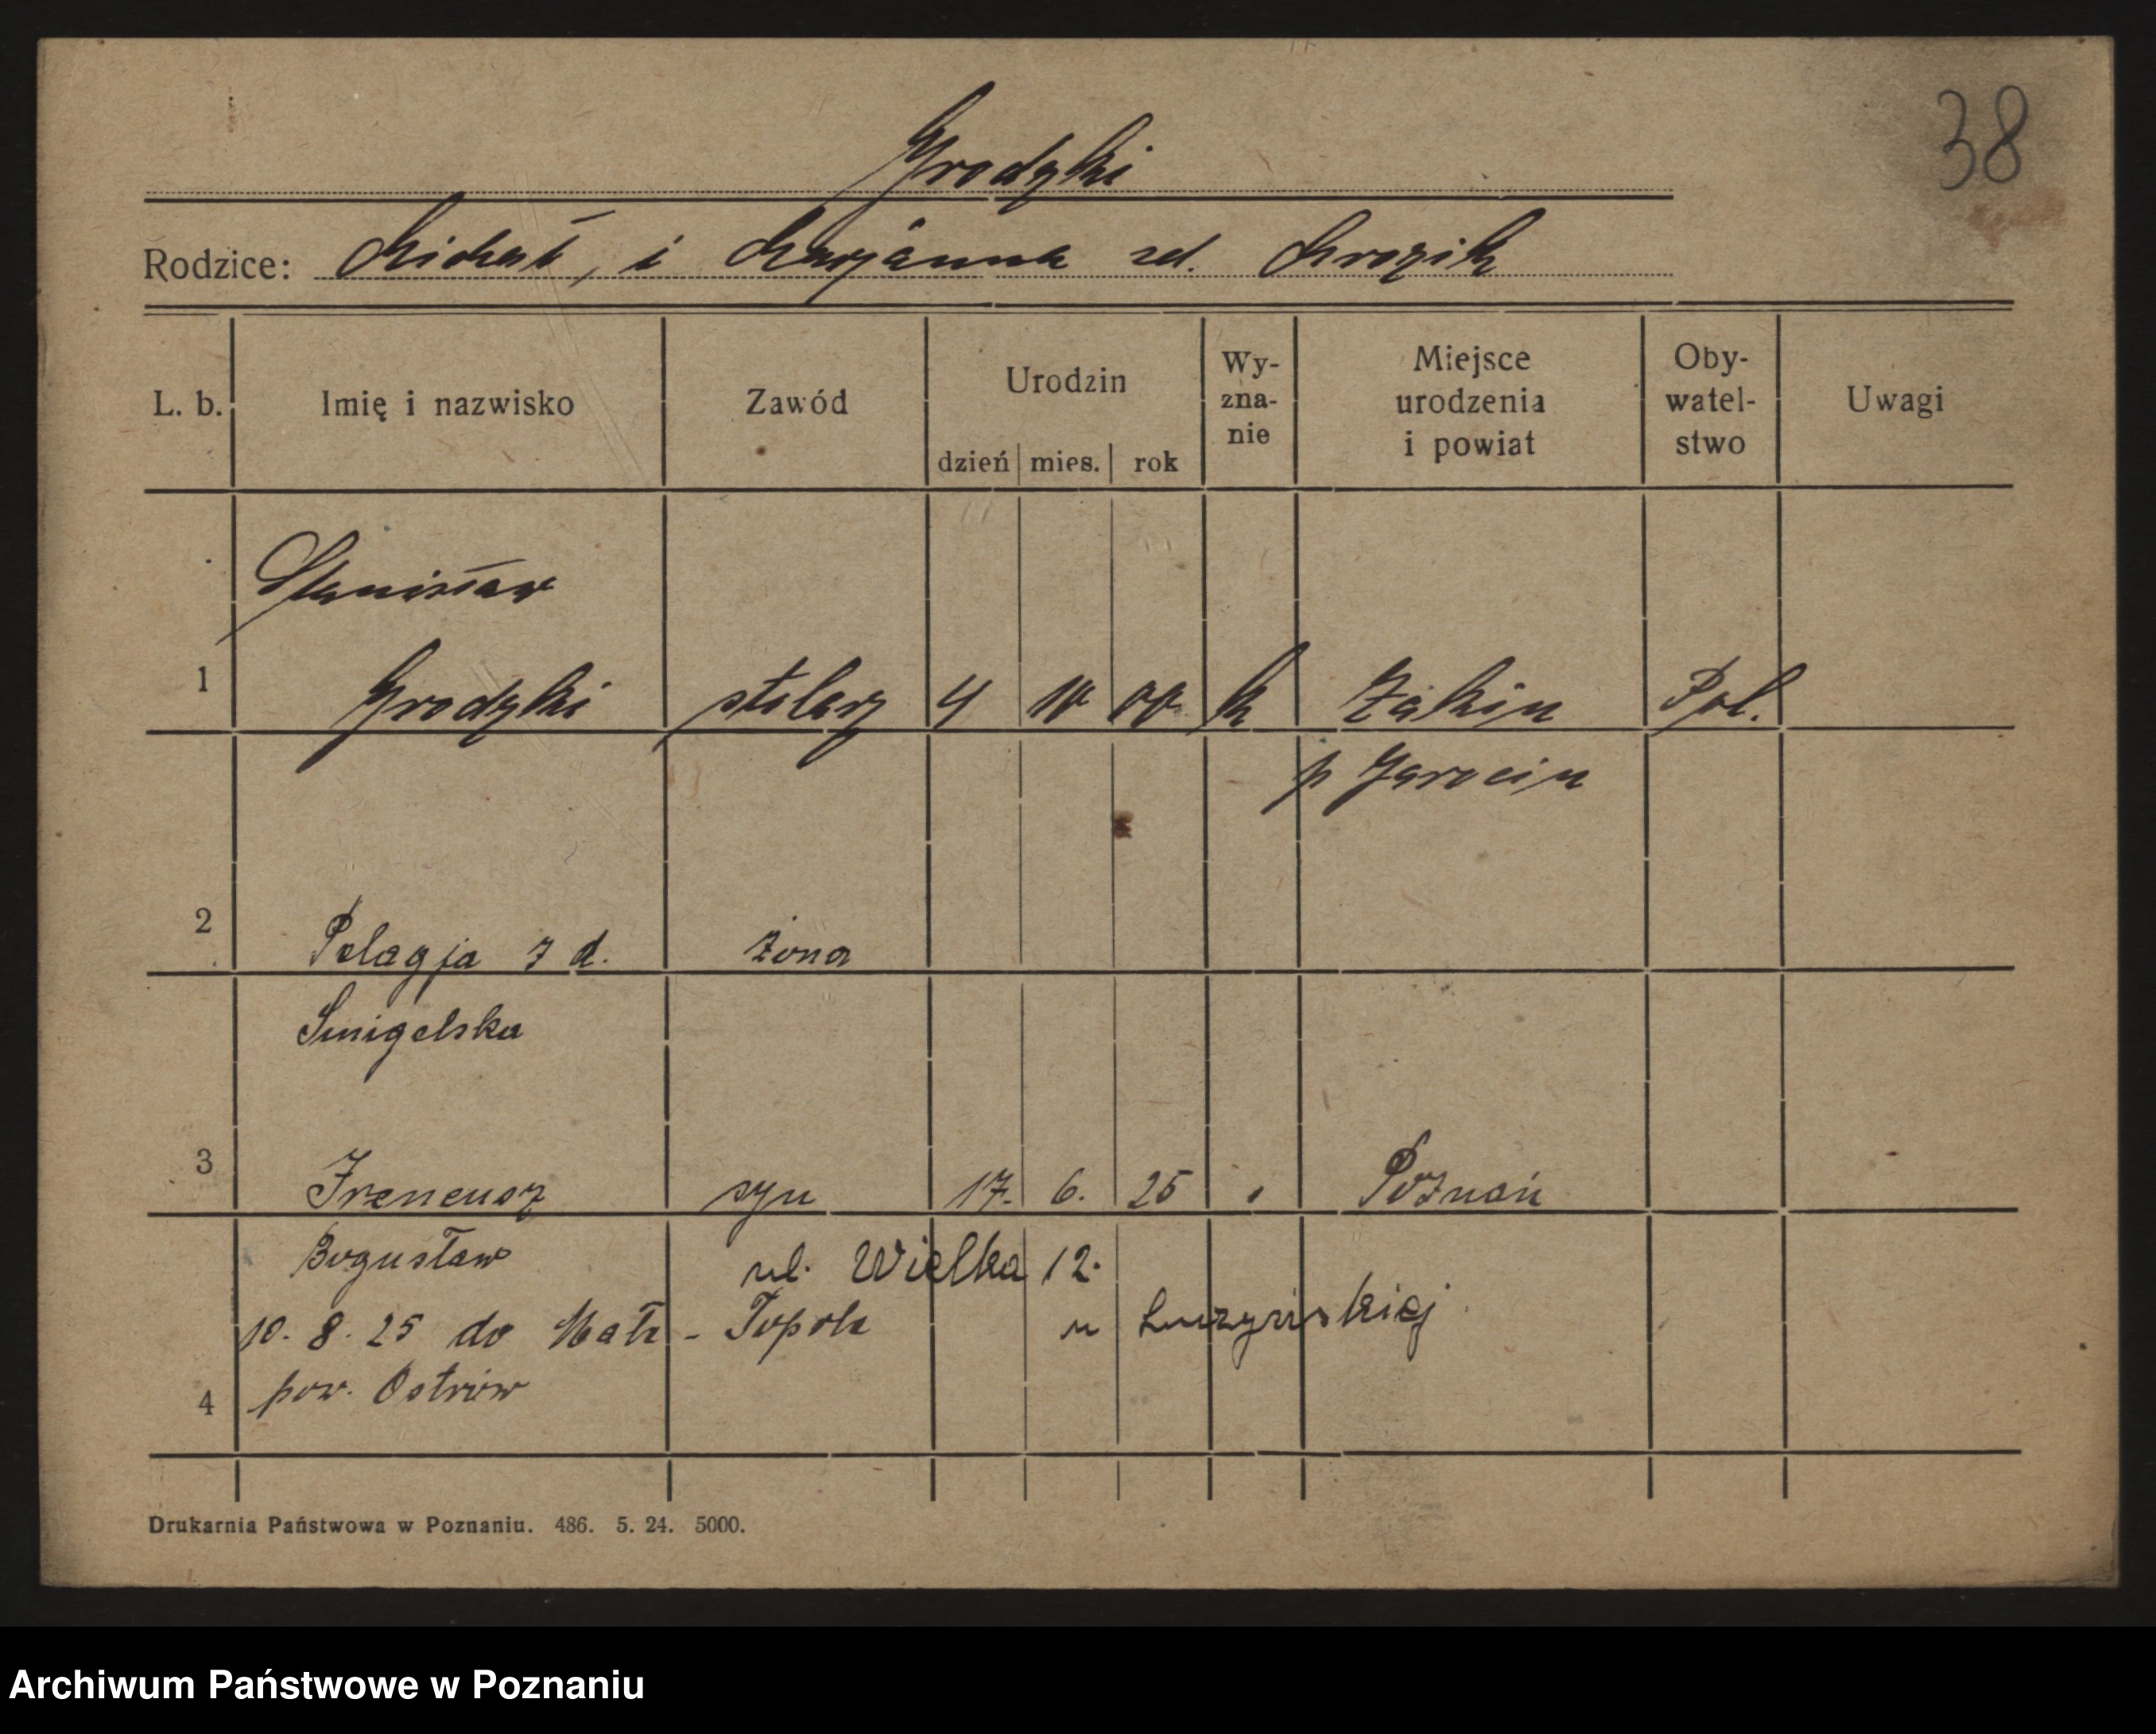 38
Grodzki
Rodzice: Michał, i Marjanna zd. Mrozik
L. b. Imię i nazwisko Zawód Urodzin Wy-zna-nie Miejsce urodzenia i powiat Oby-watel-stwo Uwagi
dzień mies. rok
Stanisław
1 Grodzki stolarz 4 10 00 k Żakin Pol.
p Jarocin
2 Pelagja z d. żona
Smigelska
3 Ireneusz syn 17. 6. 25 Poznań
Bogusław ul. Wielka 12.
10. 8. 25 do Mała - Topola u
pow. Ostrów
4
Drukarnia Państwowa w Poznaniu. 486. 5. 24. 5000.
Archiwum Państwowe w Poznaniu